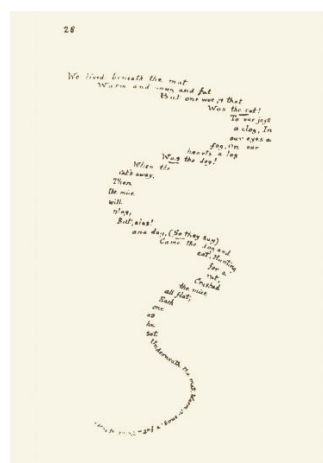 28
We lived beneath the mat
Warm and snug and fat
But one woe, & that
Was the cat!
To our joys
a clog, In
our eyes a
fog, On our
hearts a log
Was the dog!
When the
cat's away,
Then
the mice
will
play,
But, alas!
one day, (So they say)
Came the dog and
cat, Hunting
for a
rat,
Crushed
the mice
all flat,
Each
one
as
he
sat
Underneath the mat,